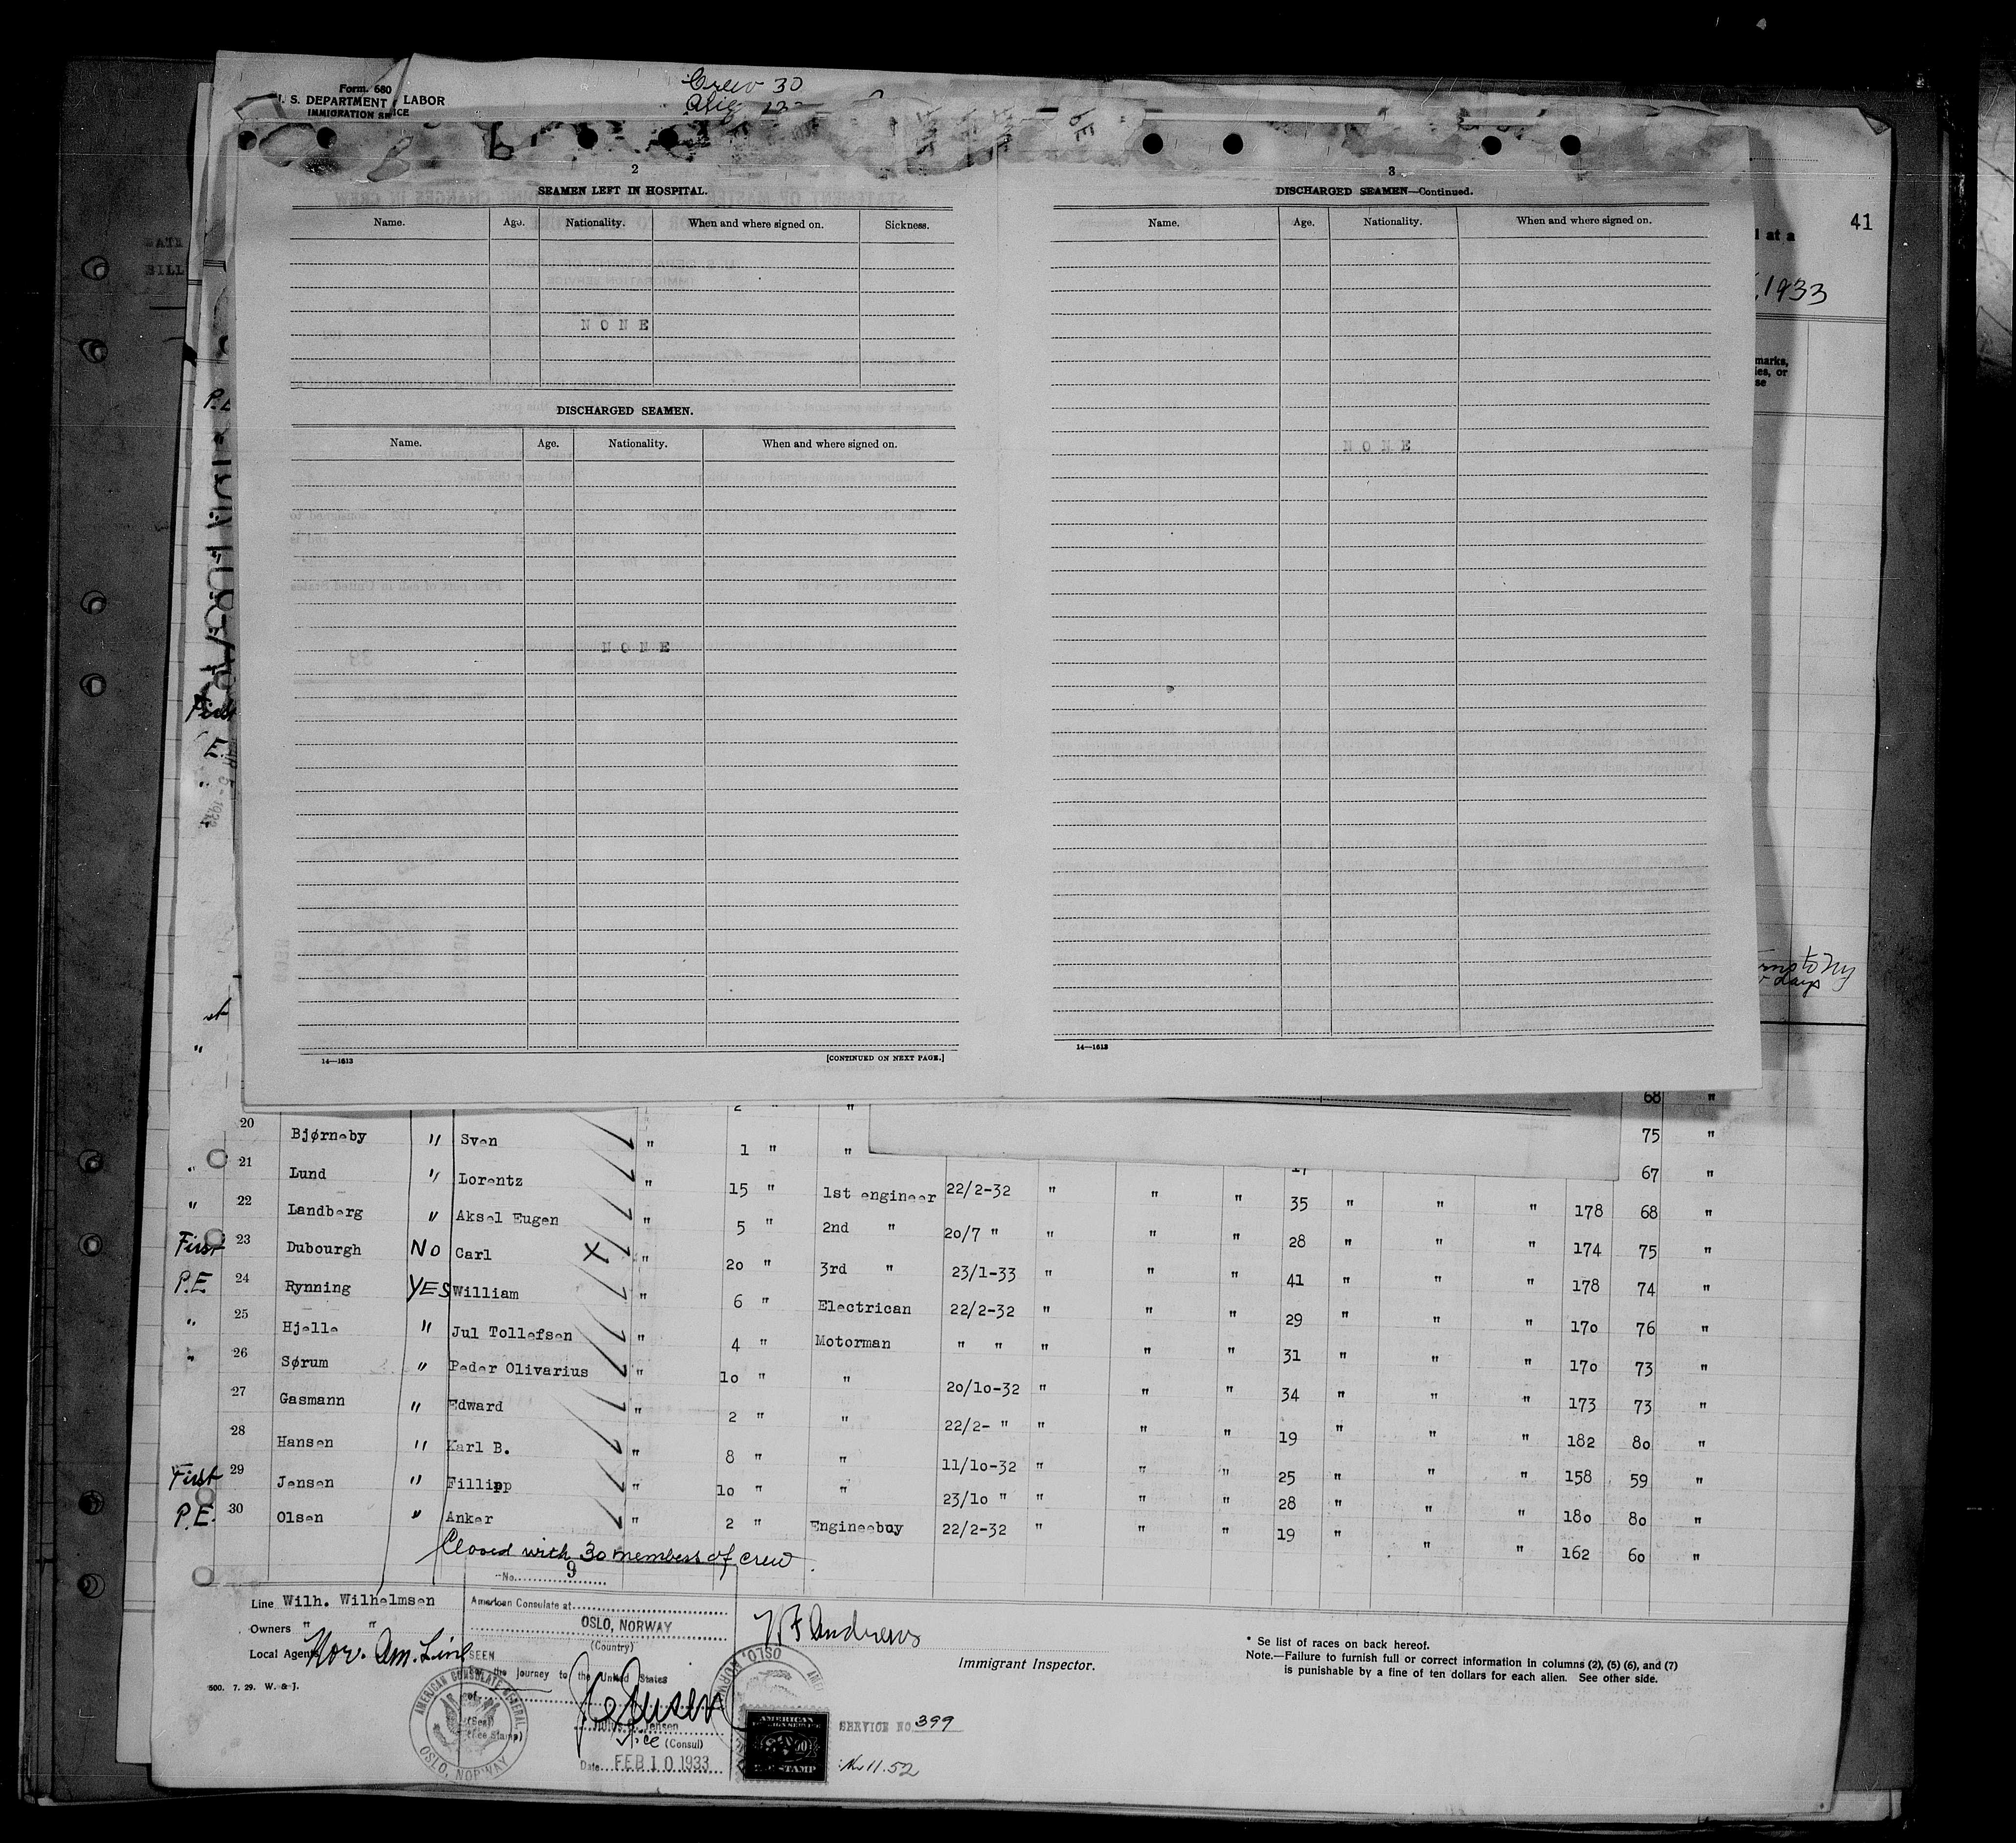 Form 680
U. S. DEPARTMENT LABOR
IMMIGRATION SERVICE
Crew 30
41
at a
1933
marks,
ies, or
se
2
SEAMEN LEFT IN HOSPITAL.
Name. Age. Nationality. When and where signed on. Sickness.
NONE
DISCHARGED SEAMEN.
Name. Age. Nationality. When and where signed on.
NONE
14—1613 [CONTINUED ON NEXT PAGE.]
3
DISCHARGED SEAMEN—Continued.
Name. Age. Nationality. When and where signed on.
NONE
14—1613
to Ny
days
2 " " 68 "
20 Bjørneby " Sven " 1 " " 75 "
" 21 Lund " Lorentz " 15 " 1st engineer 22/2-32 " " " 17 67 "
" 22 Landberg " Aksel Eugen " 5 " 2nd " 20/7 " " " " 35 " " " 178 68 "
First 23 Dubourgh No Carl X " 20 " 3rd " 23/1-33 " " " 28 " " " 174 75 "
P.E 24 Rynning YES William " 6 " Electrican 22/2-32 " " " 41 " " " 178 74 "
" 25 Hjelle " Jul Tollefsen " 4 " Motorman " " " " " 29 " " " 170 76 "
" 26 Sørum " Peder Olivarius " 10 " " 20/10-32 " " " 31 " " " 170 73 "
27 Gasmann " Edward " 2 " " 22/2- " " " " 34 " " " 173 73 "
28 Hansen " Karl B. " 8 " " 11/10-32 " " " 19 " " " 182 80 "
First 29 Jensen " Fillipp " 10 " " 23/10 " " " " 25 " " " 158 59 "
P.E. 30 Olsen " Anker " 2 " Engineeboy 22/2-32 " " " 28 " " " 180 80 "
19 " " " 162 60 "
Closed with 30 members of crew
No. 9
Line Wilh. Wilhelmsen
Owners " "
Local Agents Nor. Am. Line
500. 7. 29. W. & J.
American Consulate at
OSLO, NORWAY
(Country)
SEEN
the journey to the United States
of
(Seal)
(Fee Stamp)
Jensen
Vice (Consul)
Date FEB 10 1933
AMERICAN CONSULATE GENERAL
OSLO, NORWAY
OSLO, NORWAY
AMERICAN
FOREIGN SERVICE
STAMP
SERVICE NO. 399
11.52
Andrews
Immigrant Inspector.
* Se list of races on back hereof.
Note.—Failure to furnish full or correct information in columns (2), (5) (6), and (7)
is punishable by a fine of ten dollars for each alien. See other side.